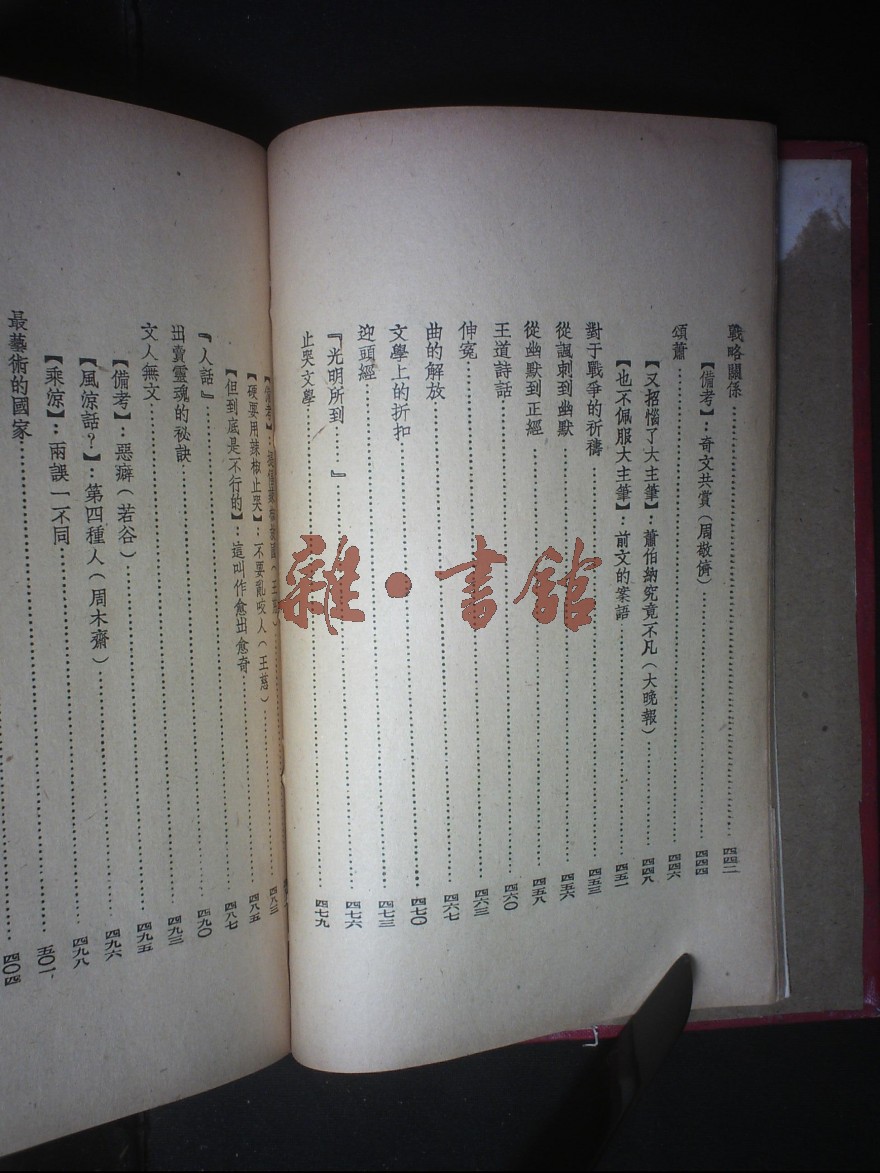 戰略關係……四四二
【備考】：奇文共賞（周敬儕）……四四四
頌蕭……四四六
【又招惱了大主筆】：蕭伯納究竟不凡（大晚報）……四四八
【也不佩服大主筆】：前文的案語……四五一
對于戰爭的祈禱……四五三
從諷刺到幽默……四五六
從幽默到正經……四五八
王道詩話……四六〇
伸冤……四六三
曲的解放……四六七
文學上的折扣……四七〇
迎頭經……四七三
『光明所到……』……四七六
止哭文學……四七九
【備考】：（王慈）……四八三
【硬要用辣椒止哭】：不要亂咬人（王慈）……四八五
【但到底是不行的】：這叫作愈出愈奇……四八七
『人話』……四九〇
出賣靈魂的祕訣……四九三
文人無文……四九五
【備考】：惡癖（若谷）……四九六
【風涼話？】：第四種人（周木齋）……四九八
【乘涼】：兩誤一不同……五〇一
最藝術的國家……四〇四
雜·書館